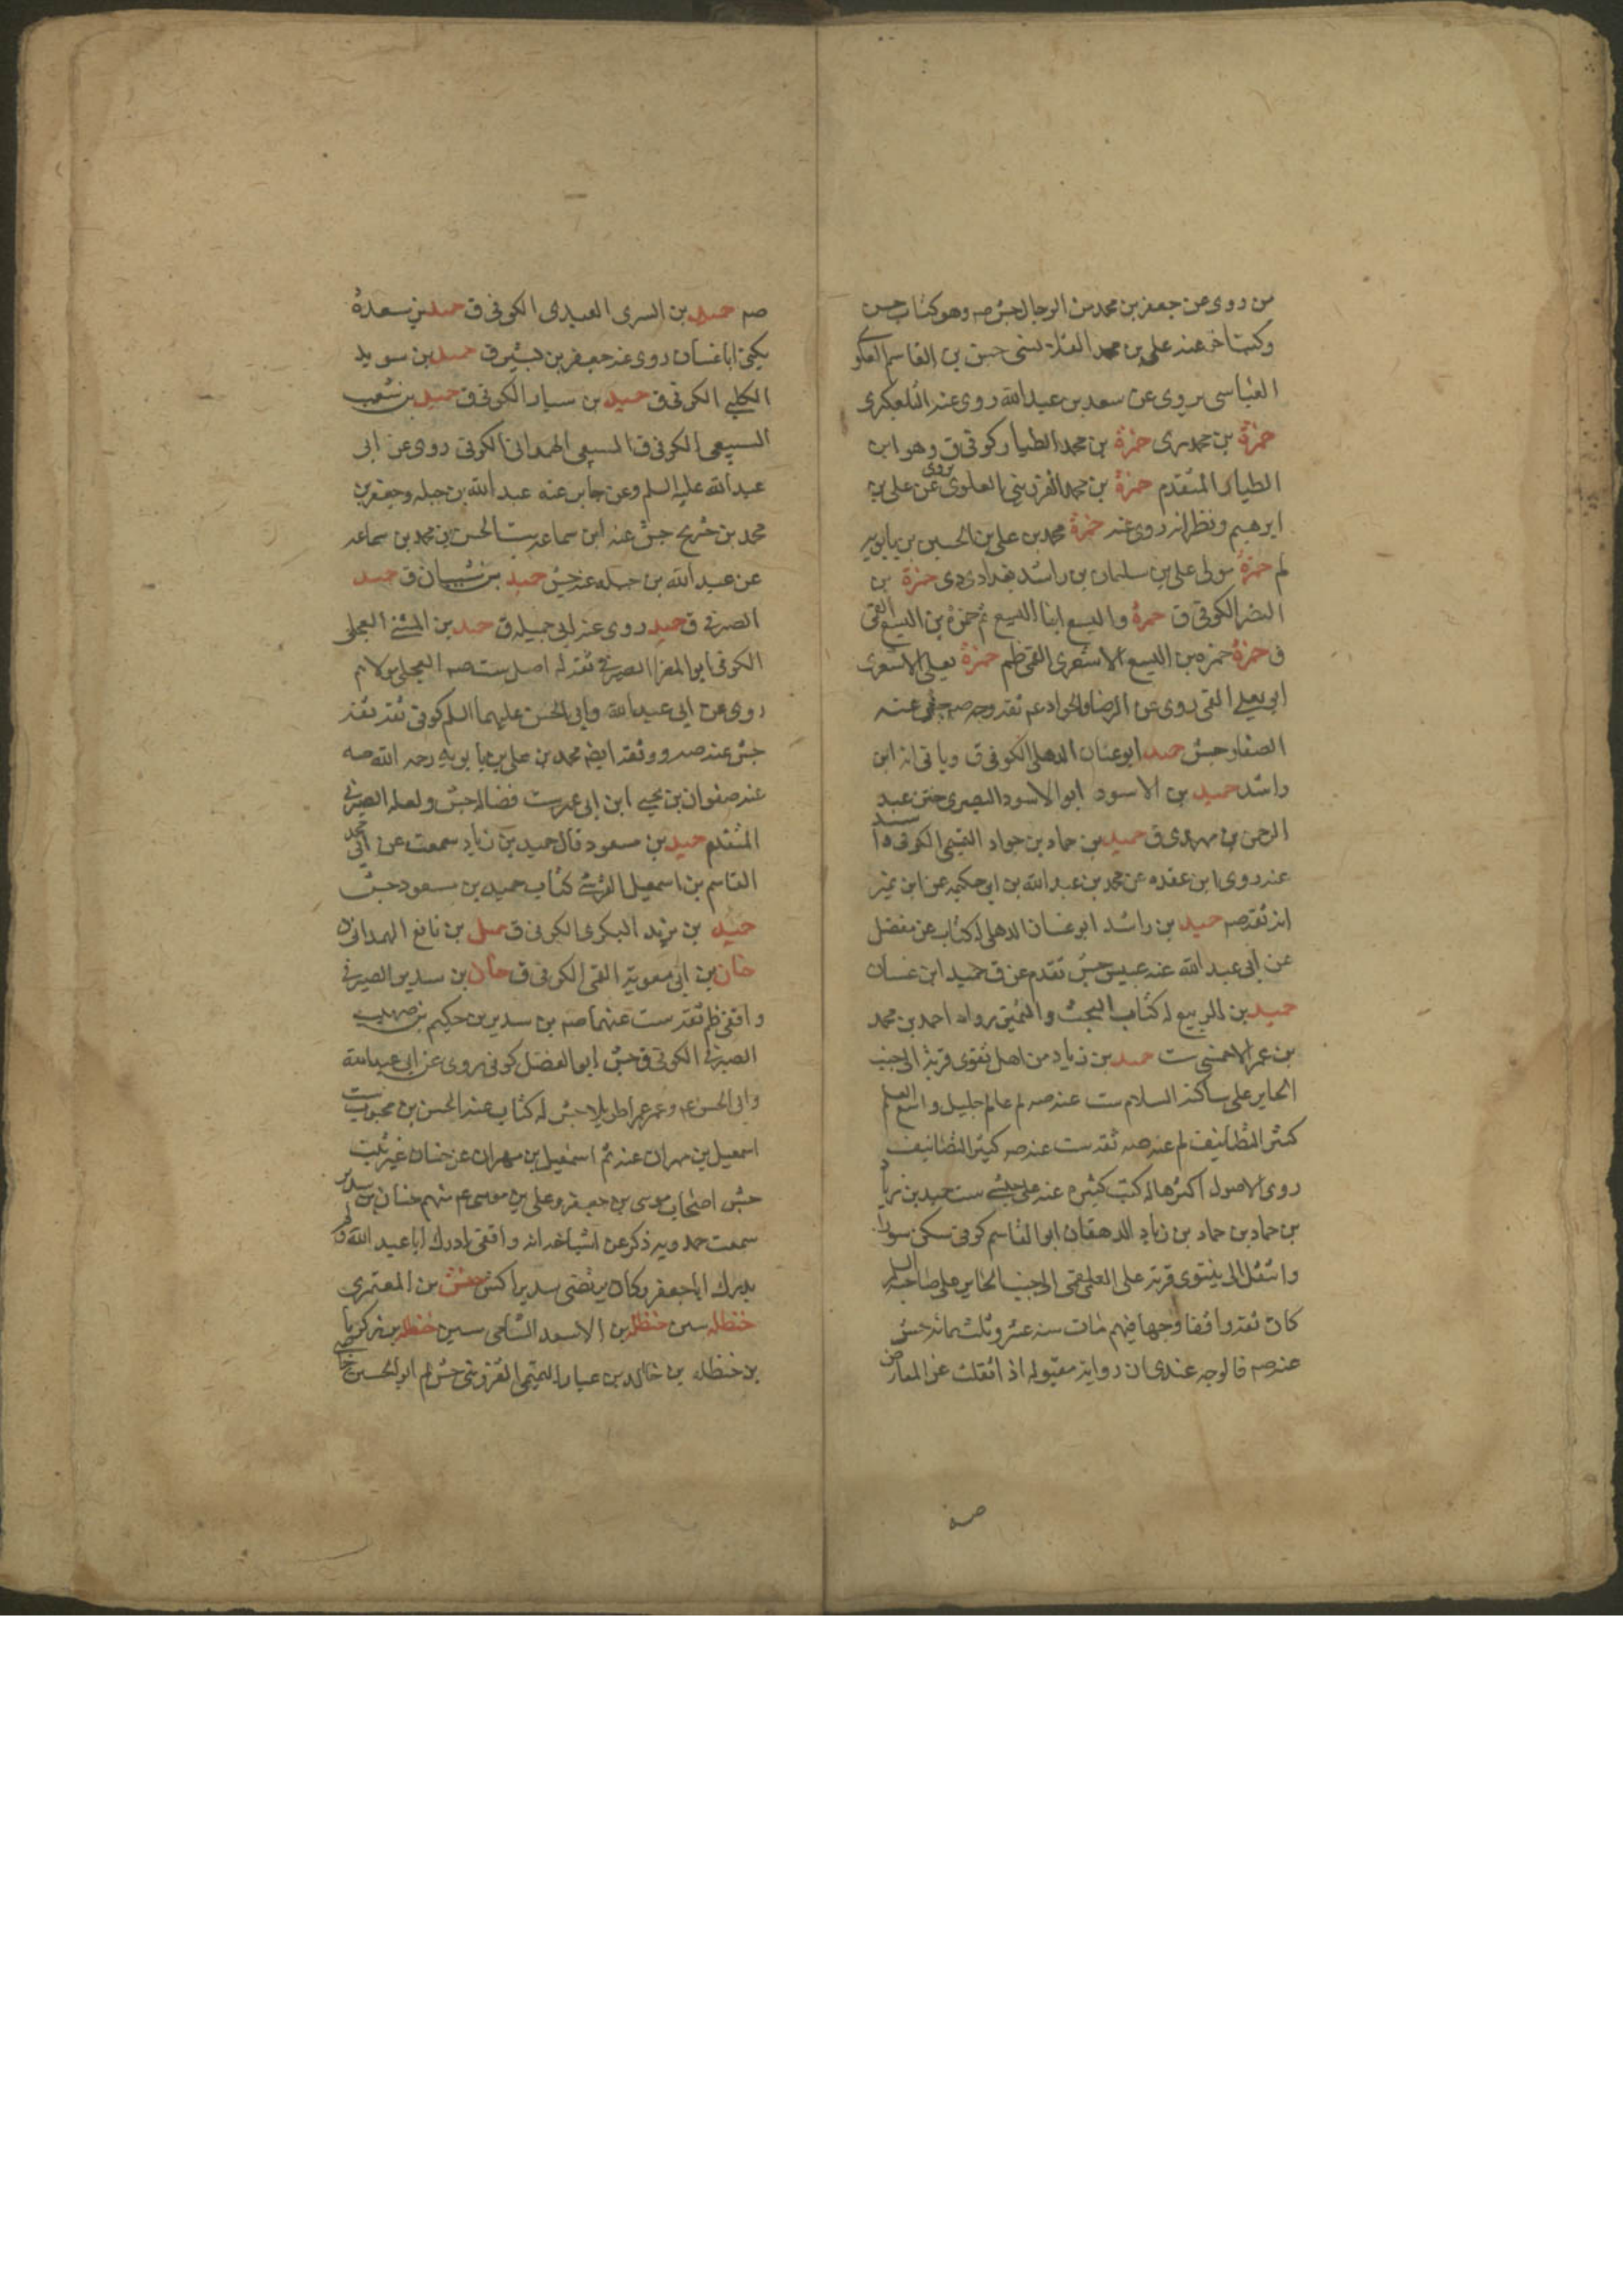 من روى عن جعفر بن محمد من الرجال جش صه وهو كتاب حسن
وكتب اخر عنه على بن محمد القلا نسى حمزة بن القاسم العلوى
العباسى يروى عن سعد بن عبد الله روى عنه التلعكبرى
حمزة بن محمد رى حمزة بن محمد الطيار كوفى ق وهو ابن
الطيار المتقدم حمزة بن محمد القزوينى العلوى يروى عن على بن
ابرهيم ونظرائه روى عنه حمزة محمد بن على بن الحسين بن بابويه
لم حمزة مولى على بن سليمان بن راشد بغدادى دى حمزة بن
النضر الكوفى ق حمزة واليسع ابنا اليسع ثم حمزة بن اليسع القمى
ق حمزة حمزه بن اليسع الاشعرى القمى ظم حمزة يعلى الاشعرى
ابو يعلى القمى روى عن الرضا والجواد عم ثقه وجه صه جش عنه
الصفار جش حميد ابو غسان الذهلى الكوفى ق وياتى انه ابن
راشد حميد بن الاسود ابو الاسود البصرى ختن عبد
الرحمن بن مهدى ق حميد بن حماد بن جواد التميمى الكوفى ق
عنه روى ابن عقده عن محمد بن عبد الله بن ابى حكيمه عن ابن نمير
انه ثقه صه حميد بن راشد ابو غسان الذهلى له كتاب عن مفضل
عن ابى عبد الله عنه عبيس جش تقدم عن ق حميد ابن غسان
حميد بن الربيع له كتاب البحث والتميز رواه احمد بن محمد
بن عمر الاحمسى ست حميد بن زياد من اهل نينوى قرية الى جنب
الحاير على ساكنه السلام ست عنه صه لم عالم جليل واسع العلم
كثير التصانيف لم عنه صه ثقه ست عنه صه كثير التصانيف
روى الاصول اكثرها له كتب كثيره عنه على حبشى ست حميد بن زياد
بن حماد بن حماد بن زياد الدهقان ابو القاسم كوفى سكن سورا
وانتقل الى نينوى قرية على العلقمى الى جنب الحاير على صاحبه السلم
كان ثقه واقفا وجها فيهم مات سنه عشر وثلثمائه جش
عنه صه فالوجه عندى ان روايته مقبوله اذا انفلت عن المعارض
صه حميد بن السرى العبدى الكوفى ق حميد بن سعده
يكنى ابا غسان روى عنه جعفر بن بشير ق حميد بن سويد
الكلبى الكوفى ق حميد بن سيار الكوفى ق حميد بن شعيب
السبيعى الكوفى ق السبيعى الهمدانى الكوفى روى عن ابى
عبد الله عليه السلم وعن جابر عنه عبد الله بن جبله وجعفر بن
محمد بن شريح جش عنه ابن سماعه ست الحسن بن محمد بن سماعه
عن عبد الله بن جبله عنه جش حميد بن شيبان ق حميد
الصيرفى ق حميد روى عنه ابى جميله ق حميد بن المثنى العجلى
الكوفى ابو المغرا الصيرفى ثقه له اصل ست صه العجلى مولاهم
روى عن ابى عبد الله وابى الحسن عليهما السلم كوفى ثقه ثقه
جش عنه صه ووثقه ايضا محمد بن على بن بابويه رحمه الله صه
عنه صفوان بن يحيى ابن ابى عمير ست فضاله جش ولعله الصيرفى
المتقدم حميد بن مسعود قال حميد بن زياد سمعت من ابى محمد
القاسم بن اسمعيل القرشى كتاب حميد بن مسعود جش
حميد بن يزيد البكرى الكوفى ق حميل بن نافع الهمدانى
حنان بن ابى معوية القمى الكوفى ق حنان بن سدير الصيرفى
واقفى ظم ثقه ست عنهما صه بن سدير بن حكيم بن صهيب
الصيرفى الكوفى ق جش ابو الفضل كوفى روى عن ابى عبد الله
وابى الحسن عم وعمر عمرا طويلا جش له كتاب عنه الحسن بن محبوب ست
اسمعيل بن مهران عنه ثم اسمعيل بن مهران عن حنان غير ثبت
جش اصحاب موسى بن جعفر وعلى بن موسى عم منهم حنان بن سدير
سمعت حمدويه ذكر عن اشياخه انه واقفى ادرك ابا عبد الله ولم
يدرك ابا جعفر وكان يرتضى به سديرا كش حنش بن المعتمر ى
حنظله سين حنظلة بن الاسعد الشامى سين حنظله بن زكريا
بن حنظله بن خالد بن عيار التميمى القزوينى جش لم ابو الحسن خاصى